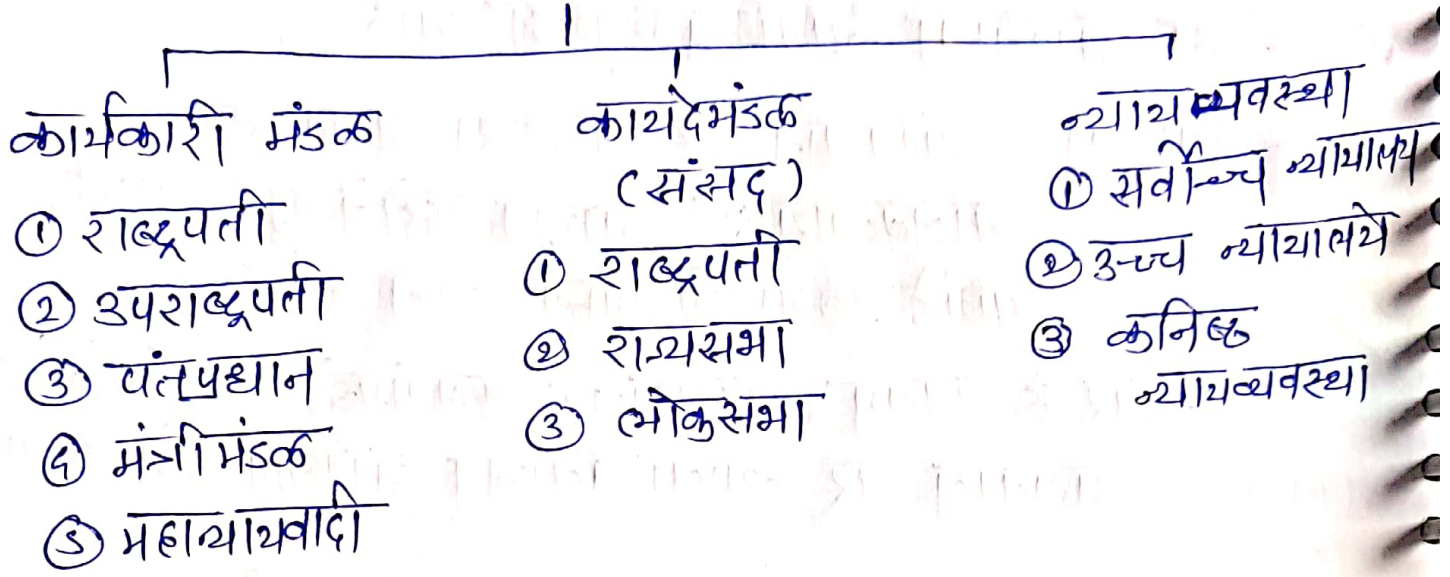 कार्यकारी मंडळ
① राष्ट्रपती
② उपराष्ट्रपती
③ पंतप्रधान
④ मंत्रीमंडळ
⑤ महान्यायवादी
कायदेमंडळ
(संसद)
① राष्ट्रपती
② राज्यसभा
③ लोकसभा
न्यायव्यवस्था
① सर्वोच्च न्यायालय
② उच्च न्यायालये
③ कनिष्ठ
न्यायव्यवस्था